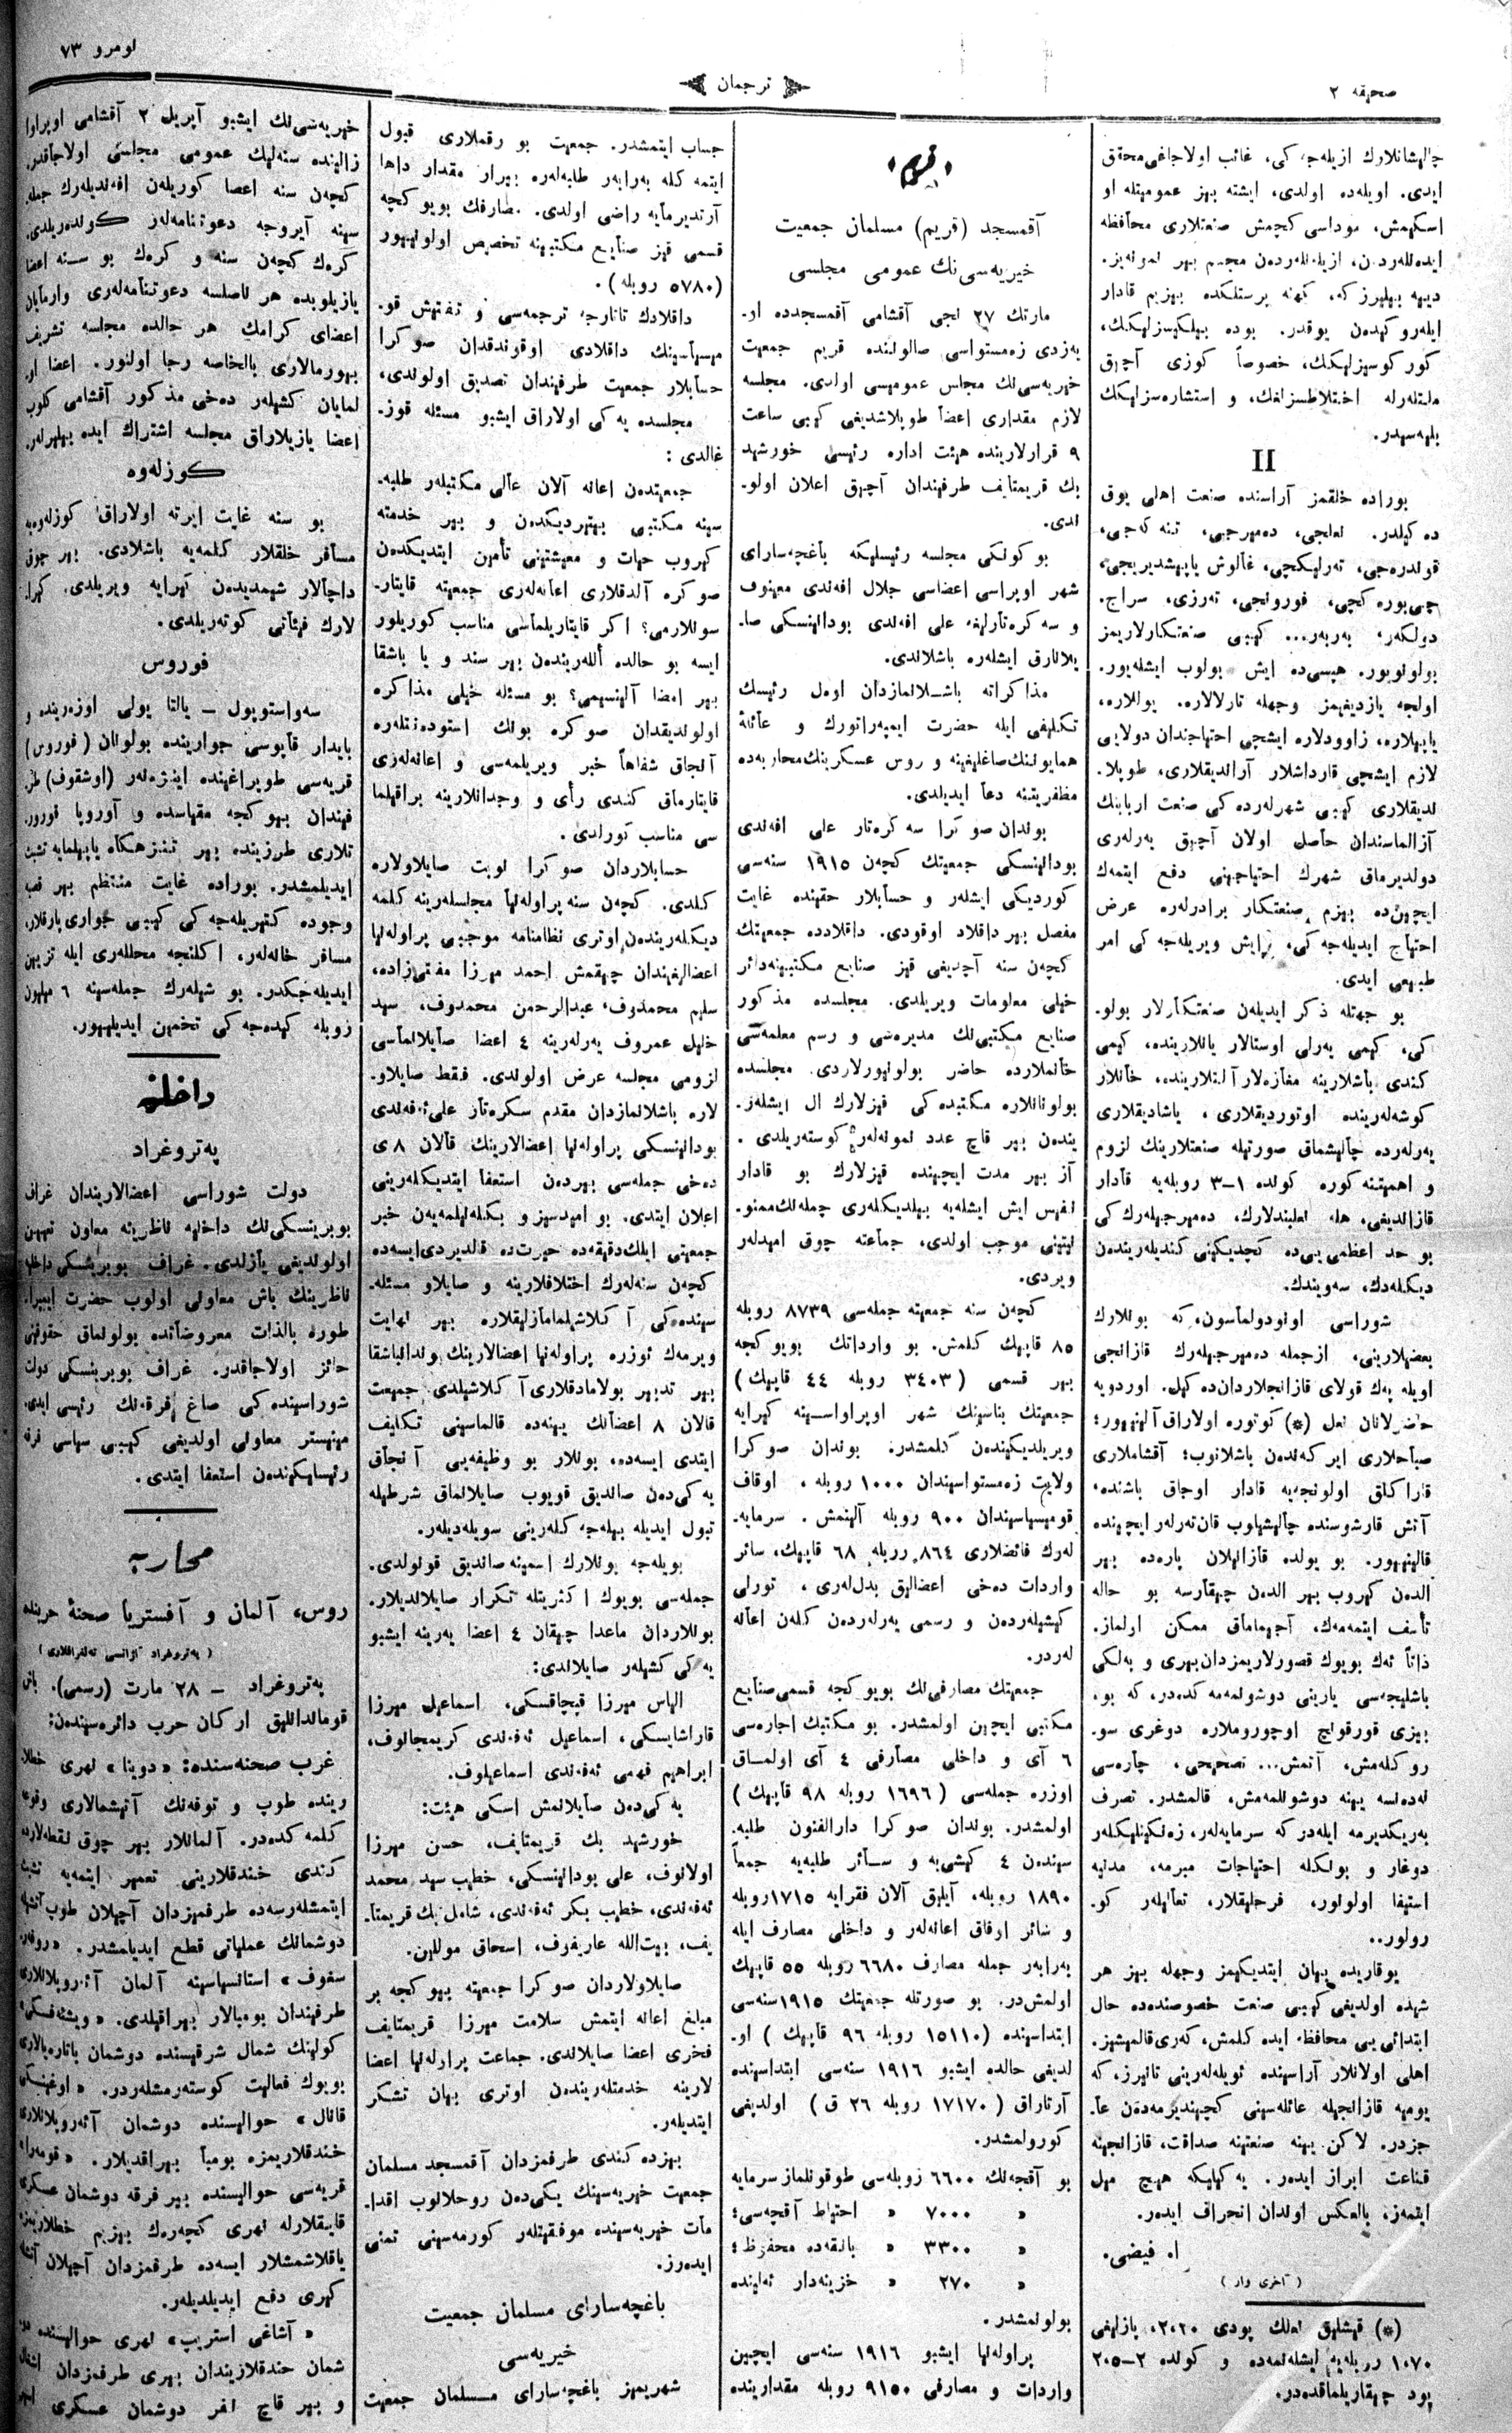 صحیفه ٢
ترجمان
نومرو ٧٣
چالیشانلارك ازیله‌جكی، غائب اولاجاغی محقق
ایدی. اویله‌ده اولدی، ایشته بهز عمومیتله او
اسكیمش، موداسی كچمش صنعتلاری محافظه
دیهه بهلیرز كه، كهنه پرستلكده بهزیم قادار
ایله‌رو كهده‌ن یوقدر. بوده بهلكیسزلهكك،
كور كوسهزلهكك، خصوصاً كوزی آچق
ملتله‌رله اختلاطسزلغك، و استشاره‌سزلهكك
بلیه‌سیدر.
II
بوراده خلقمز آراسنده صنعت اهلی یوق
ده كهلدر. نعلجی، ده‌مهرجی، تنه كه‌جی،
دولكه‌ر، به‌ربه‌ر... كهبی صنعتكارلاریمز
بولونویور. هپسی‌ده ایش بولوب ایشله‌یور.
اولجه یازدیغهمز وجهله تارلالاره، یوللاره،
یاپهلاره، زاوودلاره ایشچی احتهاجندان دولایی
لازم ایشچی قارداشلار آرالدیقلاری، طوپلا-
ندیقلاری كهبی شهرله‌رده كی صنعت اربابنك
آزالماسندان حاصل اولان آچق یه‌رله‌ری
دولدیرماق شهرك احتهاجهنی دفع ایتمه‌ك
ایچهن‌ده بهزم صنعتكار برادرله‌ره عرض
احتهاج ایدیله‌جه كی، ایش ویریله‌جه كی امر
طبیعی ایدی.
بو جهتله ذكر ایدیله‌ن صنعتكارلار بولو-
كی، كهمی یه‌رلی اوستالار یانلارینده، كهمی
كندی باشلارینه مغازه‌لار آلدلارینده، خانلار
كوشه‌له‌رینده اوتوردیقلاری، یاشادیقلاری
یه‌رله‌رده چالیشماق صورتهله صنعتلارینك لزوم
و اهمیتنه كوره كونده ١-٣ روبله‌یه قادار
بو حد اعظمی یی‌ده كچدیكهنی كندیله‌ریندن
دیكله‌دك، سه‌ویندك.
شوراسی اونودولماسون، كه بونلارك
بعضهلارینی، ازجمله ده‌مهرجهله‌رك قازانجی
اویله پك قولای قازانجلاردان‌ده كهل. اوردویه
حاضرلانان نعل (*) كوتوره اولاراق آلنهیور؛
صباحلاری ایركه‌ندن باشلانوب؛ آقشاملاری
قارا كلق اولونجه‌یه قادار اوجاق باشنده،
آتش قارشوسنده چالیشهلوب قان‌ته‌رله‌ر ایچهنده
قالینهیور. بو یولده قازانهلان پاره‌ده بهر
الدن كهروب بهر الدن چیقارسه بو حاله
تأسف ایتمه‌مه‌ك، آجهماماق ممكن اولماز.
ذاتاً ئه‌ك بویوك قصورلاریمزدان بهری و به‌لكی
باشلیجه‌سی یارینی دوشونمه‌مه كده‌در، كه بو،
بیزی قورقونچ اوچوروملاره دوغری سو-
رو كله‌مش، آتمش... تصحیحی، چاره‌سی
له‌ده‌نسه ینه دوشونلمه‌مش، قالمشدر. تصرف
بهریكدیرمه ایله‌در كه سرمایه‌لر، زه‌نكهنلهكله‌ر
دوغار و بونكله احتهاجات مبرمه، مدنیه
استیفا اولونور، فرحلیقلار، تعالیله‌ر كو-
رولور..
یوقاریده بهان ایتدیكهمز وجهله بهز هر
شهده اولدیغی كهبی صنعت خصوصنده‌ده حال
ابتدائی‌یی محافظه ایده كلمش، كه‌ری قالمیشیز.
اهلی اولانلار آراسنده ئویله‌له‌رینی تانیرز، كه
یومیه قازانجهله عائله‌سینی كچهندیرمه‌دن عا-
جزدر. لاكن ینه صنعتنه صداقت، قازانجهنه
قناعت ابراز ایده‌ر. یه‌كیلیكه هیچ مهل
ایتمه‌ز، بالعكس اوندان انحراف ایده‌ر.
ا. فیضی.
(آخری وار)
(*) قیشلیق نعلك پودی ٢،٢٠، یازلیغی
١،٧٠ روبله‌یه ایشله‌نمه‌ده و كونده ٢-٢،٥
پود چیقاریلماقده‌در.
قریم
آقمسجد (قریم) مسلمان جمعیت
خیریه‌سی‌نك عمومی مجلسی
مارتك ٢٧ نجی آقشامی آقمسجدده او-
یه‌زدی زه‌مستواسی صالونینده قریم جمعیت
خهریه‌سی‌نك مجلس عمومیسی اولدی. مجلسه
لازم مقداری اعضا طوپلاشدیغی كهبی ساعت
٩ قرارلارینده هیئت اداره رئیسی خورشید
بك قریمتایف طرفهندان آچق اعلان اولو-
ندی.
بو كونكی مجلسه رئیسلیكه باغچه‌سارای
شهر اوپراسی اعضاسی جلال افه‌ندی معینوف
و سه كره‌تارلیغه علی افه‌ندی بودانینسكی صا-
یلانارق ایشله‌ره باشلاندی.
مذاكراته باشلانمازدان اوول رئیسك
تكلیفی ایله حضرت ایمپه‌راتورك و عائلۀ
همایونینك صاغلیغینه و روس عسكرینك محاربه‌ده
مظفریتنه دعا ایدیلدی.
بوندان صوكرا سه كره‌تار علی افه‌ندی
بودانینسكی جمعیتك كچه‌ن ١٩١٥ سنه‌سی
كوردیكی ایشله‌ر و حسابلار حقهنده غایت
مفصل بهر داقلاد اوقودی. داقلادده جمعیتك
كچه‌ن سنه آچدیغی قیز صنایع مكتبینه‌دائر
خیلی معلومات ویریلدی. مجلسده مذكور
صنایع مكتبی‌نك مدیره‌سی و رسم معلمه‌سی
خانملارده حاضر بولونیورلاردی. مجلسده
بولونانلاره مكتبده كی قیزلارك ال ایشله‌ر-
یندن بهر قاچ عدد نمونه‌له‌ر كوسته‌ریلدی.
آز بهر مدت ایچینده قیزلارك بو قادار
نفیس ایش ایشله‌یه بهلدیكله‌ری جمله‌نك‌ممنو-
نیتینی موجب اولدی، جماعته چوق امیدله‌ر
ویردی.
كچه‌ن سنه جمعیته جمله‌سی ٨٧٣٩ روبله
٨٥ قاپهك كلمش. بو وارداتك بویوكجه
بهر قسمی (٣٤٠٣ روبله ٤٤ قاپهك)
جمعیتك بناسینك شهر اوپراواسینه كیرایه
ویریلدیكیندن كلمشدر. بوندان صوكرا
ولایت زه‌مستواسیندان ١٠٠٠ روبله، اوقاف
قومیسیاسیندان ٩٠٠ روبله آلینمش. سرمایه-
له‌رك فائضلاری ٨٦٤ روبله ٦٨ قاپهك، سائر
واردات ده‌خی اعضالیق بدل‌له‌ری، تورلی
كیشیله‌ردن و رسمی یه‌رله‌ردن كلن اعانه
له‌ردر.
جمعیتك مصارفی‌نك بویوكجه قسمی‌صنایع
مكتبی ایچین اولمشدر. بو مكتبك اجاره‌سی
٦ آی و داخلی مصارفی ٤ آی اولمـاق
اوزره جمله‌سی (١٦٩٦ روبله ٩٨ قاپهك)
اولمشدر. بوندان صوكرا دارالفنون طلبه-
سیندن ٤ كیشی‌یه و سـائر طلبه‌یه جمعاً
١٨٩٠ روبله، آیلق آلان فقرایه ١٧١٥روبله
و سائر اوفاق اعانه‌لر و داخلی مصارف ایله
به‌رابه‌ر جمله مصارف ٦٦٨٠ روبله ٥٥ قاپهك
اولمش‌در. بو صورتله جمعیتك ١٩١٥سنه‌سی
ابتداسینده (١٥١١٠ روبله ٩٦ قاپهك) او-
لدیغی حالده ایشبو ١٩١٦ سنه‌سی ابتداسینده
آرتاراق (١٧١٧٠ روبله ٢٦ ق) اولدیغی
كورولمشدر.
بو آقچه‌نك ٦٦٠٠ روبله‌سی طوقونلماز سرمایه
» ٧٠٠٠ » احتیاط آقچه‌سی؛
» ٣٣٠٠ » بانقه‌ده محفوظ؛
» ٢٧٠ » خزینه‌دار ئه‌لینده
بولونمشدر.
پراوله‌نیا ایشبو ١٩١٦ سنه‌سی ایچین
واردات و مصارفی ٩١٥٠ روبله مقدارینده
حساب ایتمشدر. جمعیت بو رقملاری قبول
ایتمه كله به‌رابه‌ر طلبه‌له‌ره بیرار مقدار داها
آرتدیرمایه راضی اولدی. مصارفك بویوكچه
قسمی قیز صنایع مكتبینه تخصیص اولونیور
(٥٧٨٠ روبله).
داقلادك تاتارجه ترجمه‌سی و تفتیش قو-
میسیاسینك داقلادی اوقوندقدان صوكرا
حسابلار جمعیت طرفیندان تصدیق اولوندی.
مجلسده یه‌كی اولاراق ایشبو مسئله قوز-
غالدی:
جمعیتدن اعانه آلان عالی مكتبله‌ر طلبه-
سینه مكتبی بیتیردیكدن و بهر خدمته
كیروب حیات و معیشتینی تأمین ایتدیكدن
صوكره آلدقلاری اعانه‌له‌ری جمعیته قایتار-
سونلارمی؟ اكر قایتاریلماسی مناسب كوریلور
ایسه بو حالده ألله‌ریندن بهر سند و یا باشقا
بهر امضا آلینسینمی؟ بو مسئله خیلی مذاكره
اولوندیقدان صوكره بونك استوده‌نتله‌ره
آنجاق شفاهاً خبر ویریلمه‌سی و اعانه‌له‌ری
قایتارماق كندی رأی و وجدانلارینه براقیلما
سی مناسب كورلدی.
حسابلاردان صوكرا نوبت صایلاولاره
كلدی. كچه‌ن سنه پراوله‌نیا مجلسله‌رینه كلمه
دیكله‌ریندن اوتری نظامنامه موجبی پراوله‌نیا
اعضالیغیندان چیقمش احمد مرزا مفتی‌زاده،
سلیم محمدوف، عبدالرحمن محمدوف، سید
خلیل عمروف یه‌رله‌رینه ٤ اعضا صایلانماسی
لزومی مجلسه عرض اولوندی. فقط صایلاو-
لاره باشلانمازدان مقدم سكره‌تار علی‌ئه‌فه‌ندی
بودانینسكی پراوله‌نیا اعضالارینك قالان ٨ ی
ده‌خی جمله‌سی بهردن استعفا ایتدیكله‌رینی
اعلان ایتدی. بو امیدسیز و بكله‌نیلمه‌یه‌ن خبر
جمعیتی ایلك‌دقیقه‌ده حیرت‌ده قالدیردی‌ایسه‌ده
كچه‌ن سنه‌له‌رك اختلافلارینه و صایلاو مسئله-
سینده‌كی آكلاشیلمامازلیقلاره بهر نهایت
ویرمه‌ك ئوزره پراوله‌نیا اعضالارینك بوندان‌باشقا
بهر تدبیر بولامادقلاری آكلاشیلدی. جمیعت
قالان ٨ اعضانك یینه‌ده قالماسینی تكلیف
ایتدی ایسه‌ده، بونلار بو وظیفه‌یی آنجاق
یه‌كی‌دن صاندیق قویوب صایلانماق شرطیله
قبول ایدیله بیله‌جه كله‌رینی سویله‌دیله‌ر.
بویله‌جه بونلارك اسمینه صاندیق قونولدی.
جمله‌سی بویوك اكثریتله تكرار صایلاندیلار.
بونلاردان ماعدا چیقان ٤ اعضا یه‌رینه ایشبو
یه‌كی كشیله‌ر صایلاندی:
الیاس میرزا قیپچاقسكی، اسماعیل میرزا
قاراشایسكی، اسماعیل ئه‌فه‌ندی كریمجانوف،
ابراهیم فهمی ئه‌فه‌ندی اسماعیلوف.
یه‌كی‌دن صایلانمش اسكی هیئت:
خورشید بك قریمتایف، حسن میرزا
اولانوف، علی بودانینسكی، خطیب سید محمد
ئه‌فه‌ندی، خطیب بكر ئه‌فه‌ندی، شامل بك قریمتا-
یف، بیت‌الله عاریفوف، اسحاق موللین.
صایلاولاردان صوكرا جمعیته بیوكجه بر
مبلغ اعانه ایتمش سلامت میرزا قریمتایف
فخری اعضا صایلاندی. جماعت پراوله‌نیا اعضا
لارینه خدمتله‌ریندن اوتری بیان تشكر
ایتدیله‌ر.
بیزده كندی طرفمزدان آقمسجد مسلمان
جمعیت خیریه‌سینك یكی‌دن روحلانوب اقدا-
مات خیریه‌سینده موفقیتله‌ر كورمه‌سینی تمنی
ایده‌رز.
باغچه‌سارای مسلمان جمعیت
خیریه‌سی
شهریمیز باغچه‌سارای مسـلمان جمعیت
خیریه‌سی‌نك ایشبو آپریل ٢ آقشامی اوپراوا
زالینده سنه‌لیك عمومی مجلسی اولاجاقدر.
كچه‌ن سنه اعضا كوریله‌ن افه‌ندیله‌رك جمله
سینه آیروجه دعوتنامه‌له‌ر كونده‌ریلدی.
كره‌ك كچه‌ن سنه و كره‌ك بو سـنه اعضا
یازیلوبده هر ناصلسه دعوتنامه‌له‌ری وارمایان
اعضای كرامك هر حالده مجلسه تشریف
بیورمالاری بالخاصه رجا اولنور. اعضا او-
لمایان كشیله‌ر ده‌خی مذكور آقشامی كلوب
اعضا یازیلاراق مجلسه اشتراك ایده بیلیرله‌ر.
كوزله‌وه
بو سنه غایت ایرته اولاراق كوزله‌وه‌یه
مسافر خلقلار كلمه‌یه باشلادی. بهر چوق
داچالار شیمدیدن كیرایه ویریلدی. كیرا-
لارك فیئاتی كوته‌ریلدی.
فوروس
سه‌واستوپول — یالتا یولی اوزه‌رینده و
بایدار قاپوسی جوارینده بولونان (فوروس)
قریه‌سی طوپراغینده اینژه‌نه‌ر (اوشقوف) طر-
فیندان بیوكجه مقیاسده و آوروپا قورور-
تلاری طرزینده بهر تنزهگاه یاپیلمایه تشبث
ایدیلمشدر. بوراده غایت منتظم بهر قصبه
وجوده كتیریله‌جه كی كیبی جواری پارقلار،
مسافر خانه‌له‌ر، اكلنجه محلله‌ری ایله تزیین
ایدیله‌جكدر. بو شیله‌رك جمله‌سینه ٦ میلیون
روبله كیده‌جه كی تخمین ایدیلییور.
داخلیه
په‌تروغراد
دولت شوراسی اعضالاریندان غراف
بوبرینسكی‌نك داخلیه ناظرینه معاون تعیین
اولوندیغی یازلدی. غراف بوبرینسكی داخلیه
ناظرینك باش معاونی اولوب حضرت ایمپرا-
طوره بالذات معروضاتده بولونماق حقوقینی
حائز اولاجاقدر. غراف بوبرینسكی دولت
شوراسینده كی صاغ فرقه‌نك رئیسی ایدی.
مینیستر معاونی اولدیغی كیبی سیاسی فرقه
رئیسلیكیندن استعفا ایتدی.
محاربه
روس، آلمان و آفستریا صحنۀ حربنده
(په‌تروغراد آژانسی ته‌لغرافلاری)
په‌تروغراد — ٢٨ مارت (رسمی). باش
قوماندانلیق اركان حرب دائره‌سیندن:
غرب صحنه‌سنده: «دوینا» نهری خطلا
رینده طوپ و توفه‌نك آتیشمالاری وقوعا
كلمه كده‌در. آلمانلار بهر چوق نقطه‌لارده
كندی خندقلارینی تعمیر ایتمه‌یه تشبث
ایتمشله‌رسه‌ده طرفمزدان آچیلان طوپ آتشیله
دوشمانك عملیاتی قطع ایدیلمشدر.
ستانسیاسینه آلمان آئروپلانلاری
طرفیندان بومبالار بیراقیلدی. «ویشنه‌فسكی»
كولینك شمال شرقیسنده دوشمان باتاره‌یالاری
بویوك فعالیت كوسته‌رمشله‌ردر. «اوغینسكی
قانال» حوالیسنده دوشمان آئه‌روپلانلاری
خندقلاریمزه بومبا بیراقدیلار.
قریه‌سی حوالیسنده بیر فرقه دوشمان عسكری
قایقلارله نهری كچه‌رك بیزیم خطلاریمزه
یاقلاشمشلار ایسه‌ده طرفمزدان آچیلان آتشله
كیری دفع ایدیلدیله‌ر.
«آشاغی استریپ» نهری حوالیسنده دو-
شمان خندقلاریندان بیری طرفمزدان اشغال
و بهر قاچ نفر دوشمان عسكری اسیر